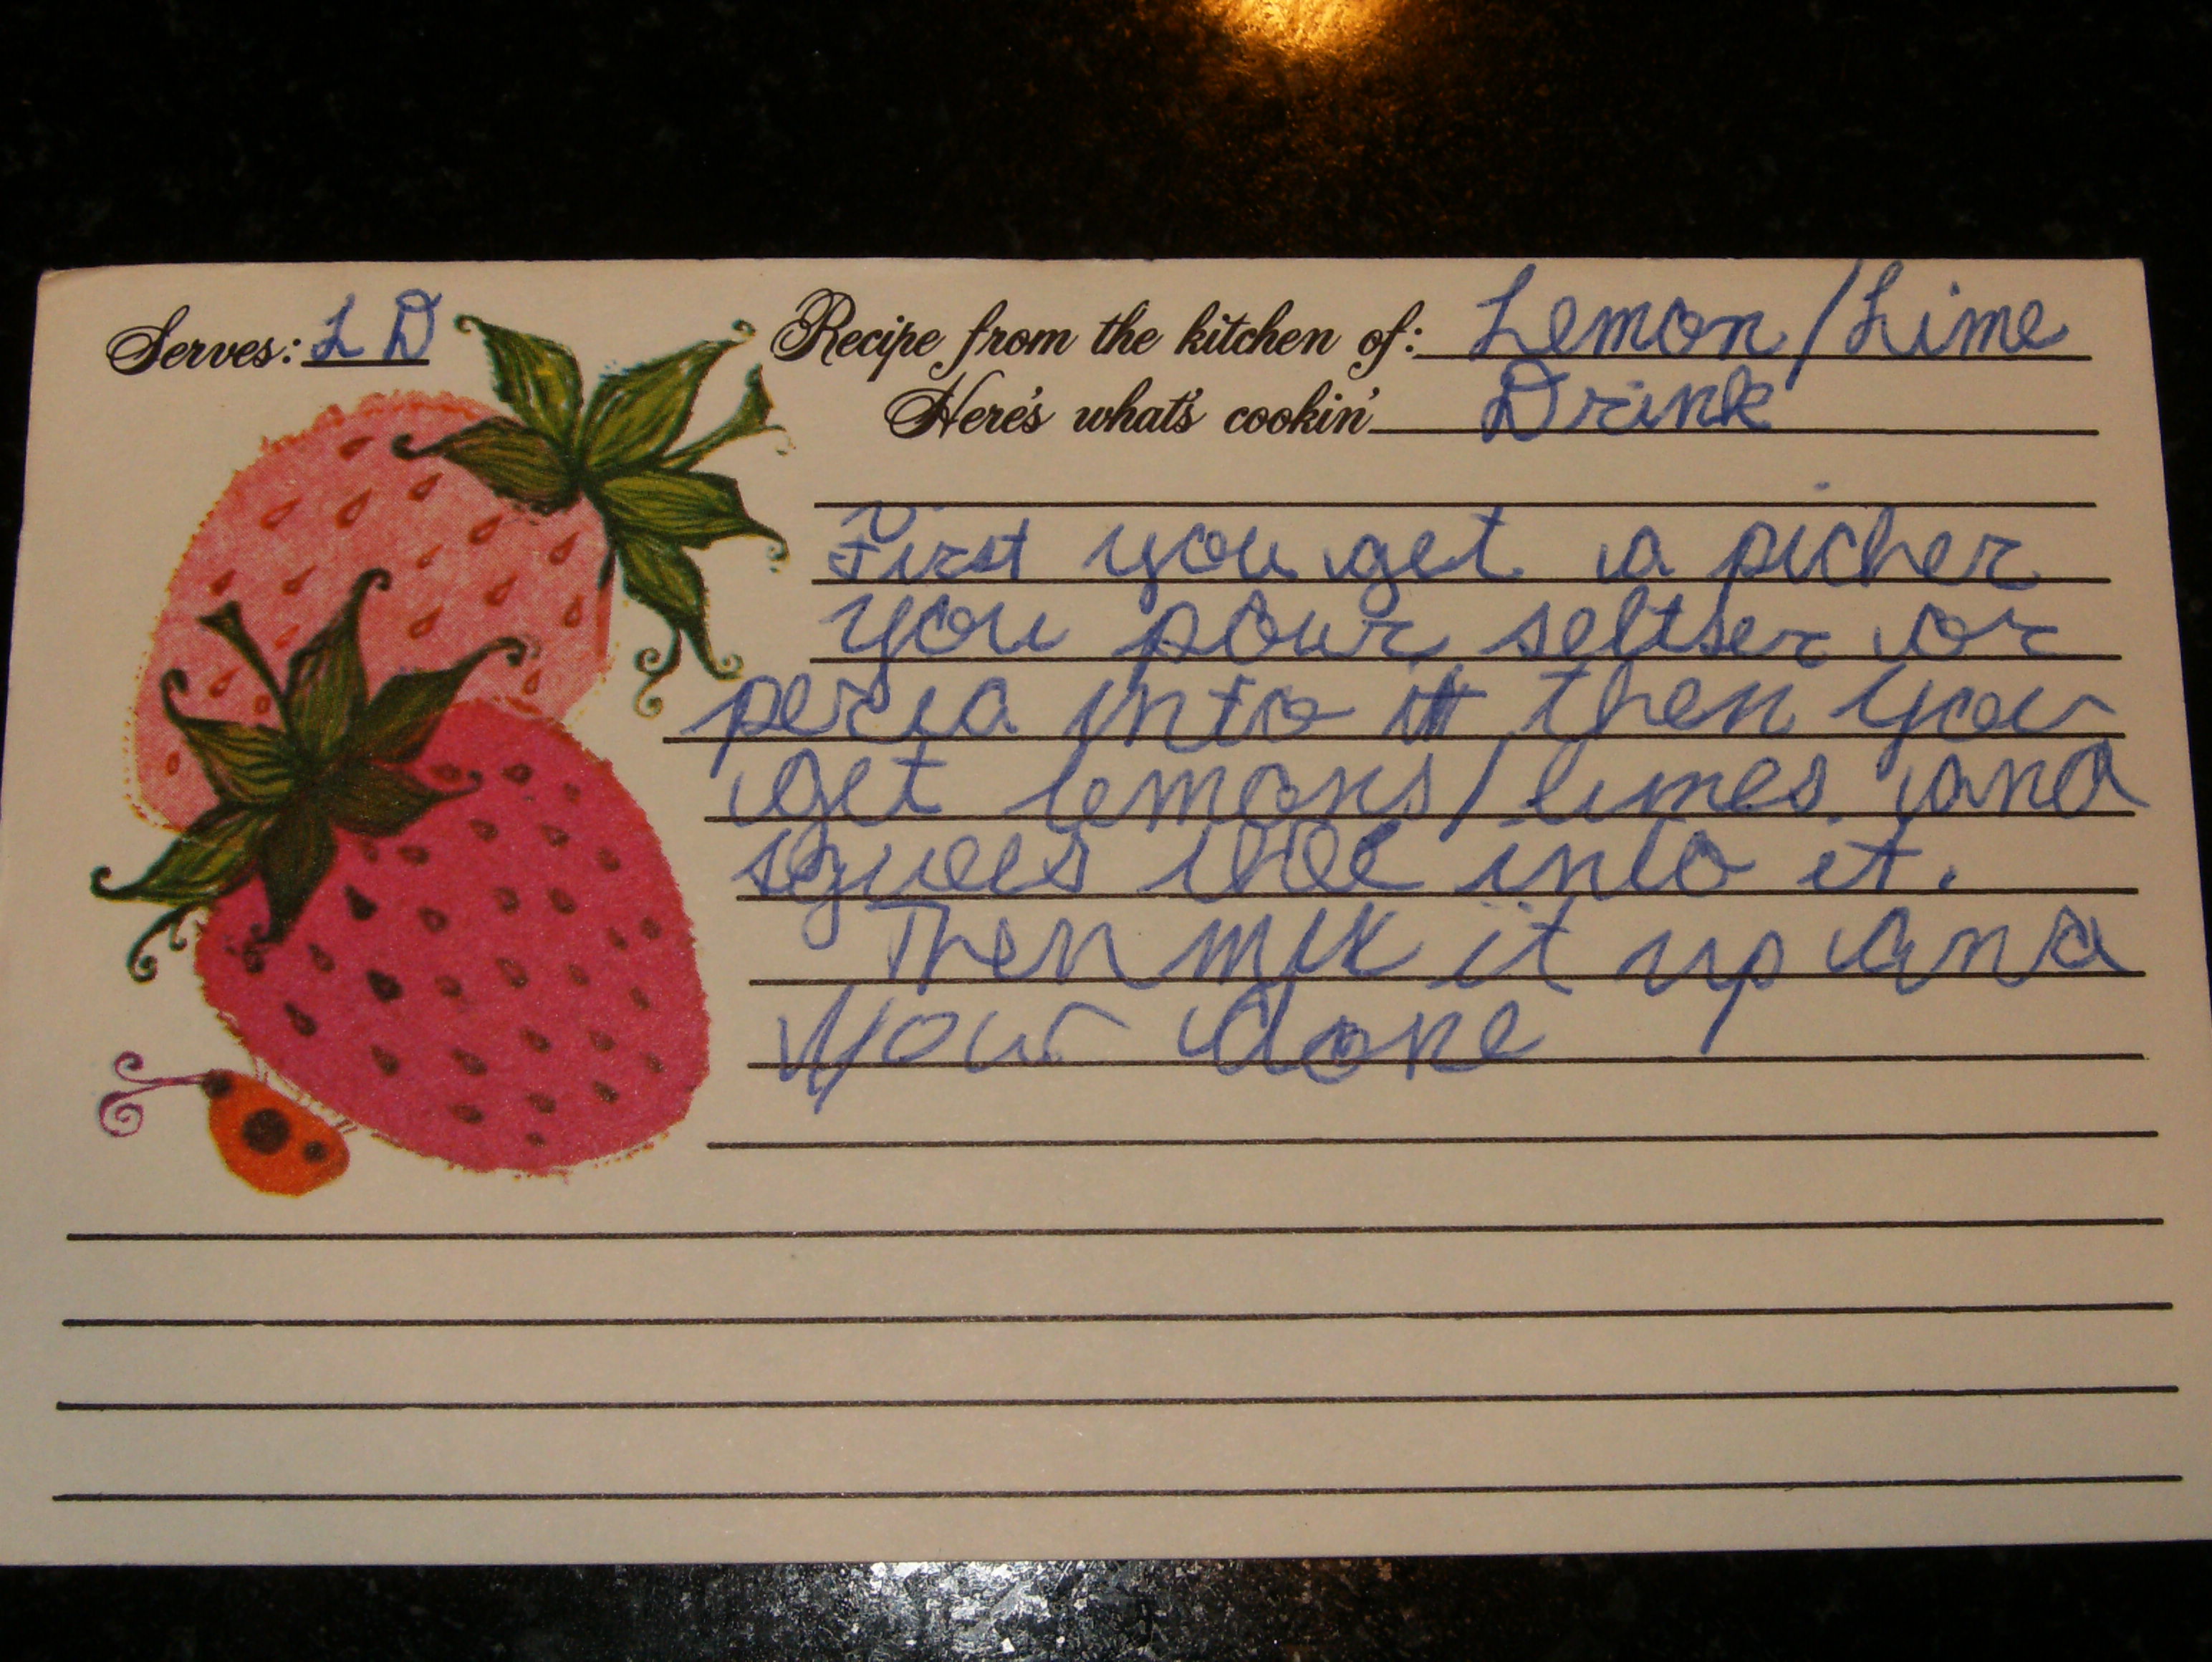 Serves: L D
Recipe from the kitchen of: Lemon/Lime
Here's what's cookin' Drink
First you get a picher
you pour seltser or
peria into it then you
get lemons/limes and
squees into it.
Then mix it up and
your done